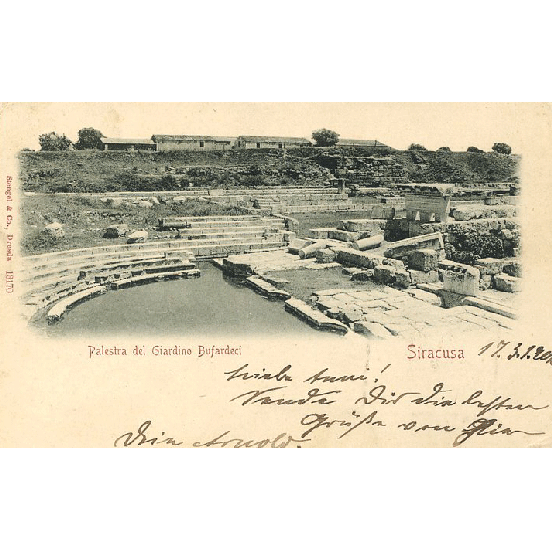 Stengel & Co., Dresda 18170
Palestra del Giardino Bufardeci
Siracusa 17.3.1.
Liebe
Sende Dir die besten
Grüße von
Dein Arnold.